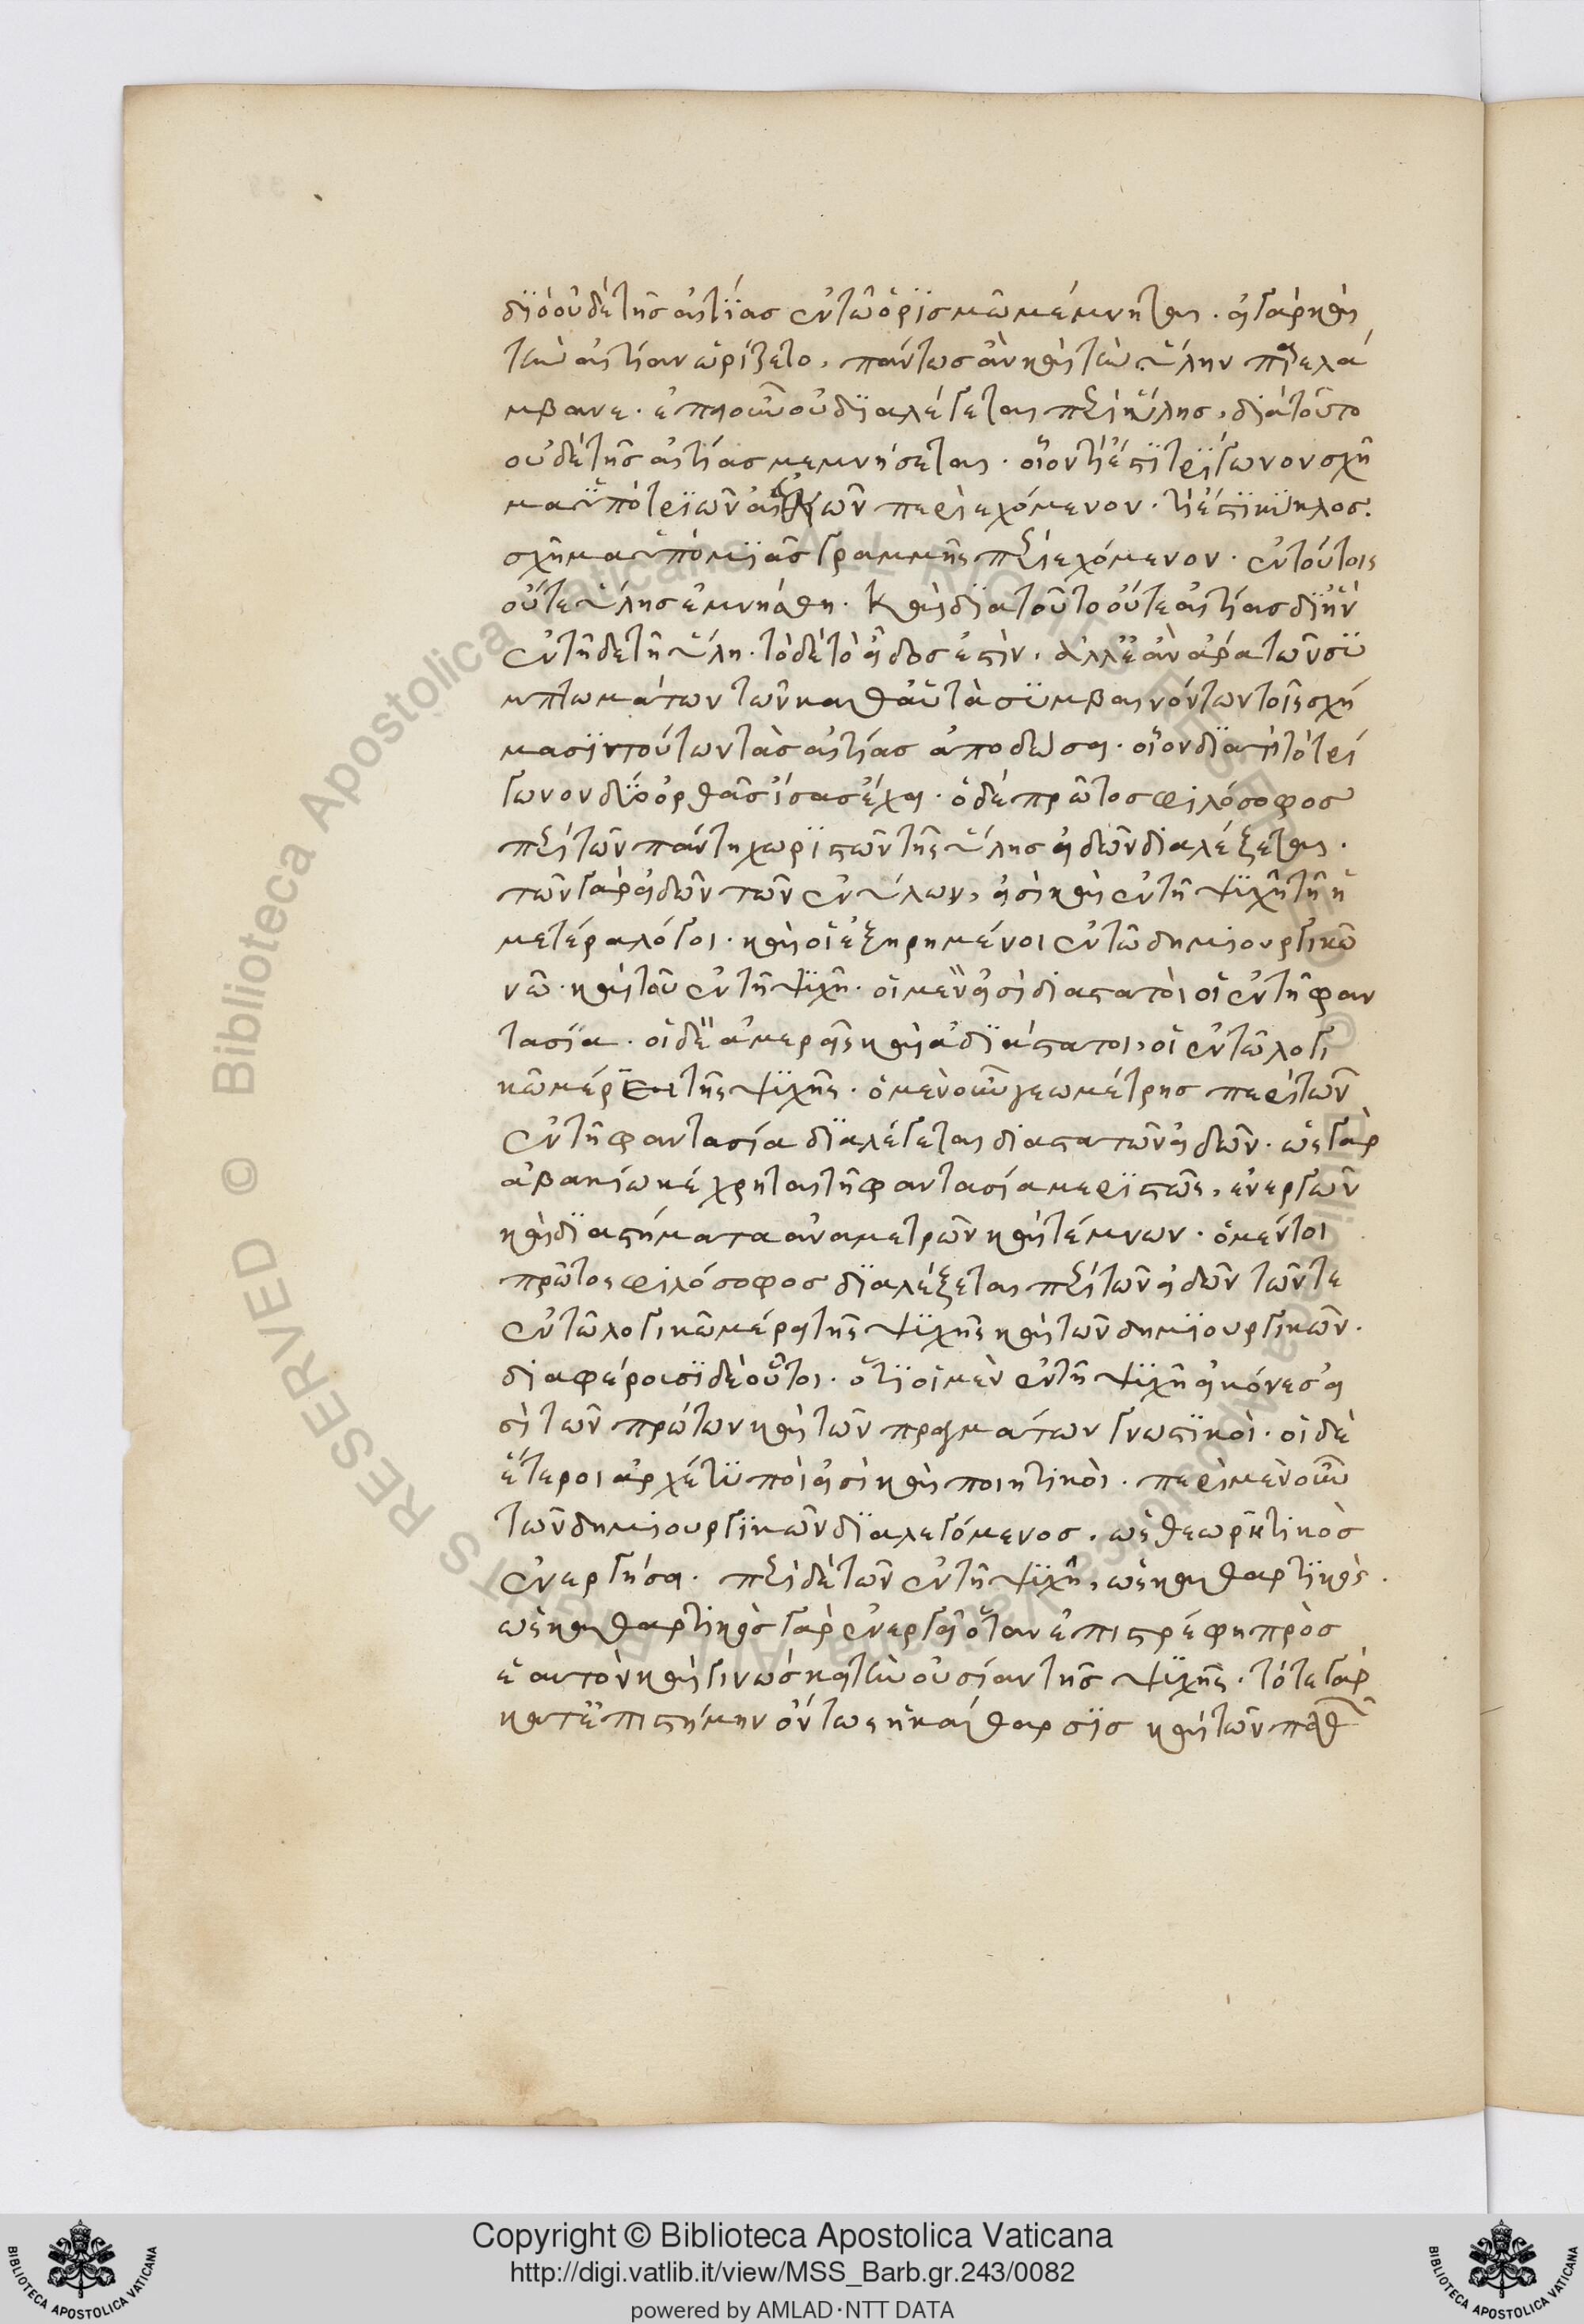 διὸ οὐδὲ τῆς αἰτίας ἐν τῷ ὁρισμῷ μέμνηται. εἰ γὰρ καὶ
τὴν αἰτίαν ὡρίζετο, πάντως ἂν καὶ τὴν ὕλην παρελά
μβανε. ἐπεὶ οὖν οὐ διαλέγεται περὶ ὕλης, διὰ τοῦτο
οὐδὲ τῆς αἰτίας μεμνήσεται. οἷον τί ἐστι τρίγωνον σχῆ
μα ὑπὸ τριῶν περιεχόμενον. τί ἐστι κύκλος.
σχῆμα ὑπὸ μιᾶς γραμμῆς περιεχόμενον. ἐν τούτοις
οὔτε ὕλης ἐμνήσθη. καὶ διὰ τοῦτο οὔτε αἰτίας δι' ἣν
ἐν τῇδε τῇ ὕλῃ. τόδε τὸ εἶδος ἐστὶν. ἀλλ' ἐὰν ἄρα τῶν συ
μπτωμάτων τῶν καθ' αὑτὰ συμβαινόντων τοῖς σχή
μασιν τούτων τὰς αἰτίας ἀποδώσει. οἷον διατί τὸ τρί
γωνον δύο ὀρθαῖς ἴσας ἔχει. ὁ δὲ πρῶτος φιλόσοφος
περὶ τῶν πάντη χωριστῶν τῆς ὕλης εἰδῶν διαλέξεται.
τῶν γὰρ εἰδῶν τῶν ἐν ὕλων, εἰσὶ καὶ ἐν τῇ ψυχῇ τῇ ἡ
μετέρα λόγοι. καὶ οἱ ἐξῃρημένοι ἐν τῷ δημιουργικῷ
νῷ. καὶ τοῦ ἐν τῇ ψυχῇ. οἱ μὲν εἰσὶ διαστατοὶ οἱ ἐν τῇ φαν
τασία. οἱ δὲ ἀμερεῖς καὶ ἀδιάστατοι, οἱ ἐν τῷ λογι
κῷ μέρει τῆς ψυχῆς. ὁ μὲν οὖν γεωμέτρης περὶ τῶν
ἐν τῇ φαντασία διαλέγεται διαστατῶν εἰδῶν. ὡς γὰρ
ἀβακίω κέχρηται τῇ φαντασία μεριστῶς, ἐνεργῶν
καὶ διαστήματα ἀναμετρῶν καὶ τέμνων. ὁ μέντοι
πρῶτος φιλόσοφος διαλέξεται περὶ τῶν εἰδῶν τῶν τε
ἐν τῷ λογικῷ μέρει τῆς ψυχῆς καὶ τῶν δημιουργικῶν.
διαφέρουσι δὲ οὗτοι. ὅτι οἱ μὲν ἐν τῇ ψυχῇ εἰκόνες εἰ
σὶ τῶν πρώτων καὶ τῶν πραγμάτων γνωστικοὶ. οἱ δὲ
ἕτεροι ἀρχέτυποι εἰσὶ καὶ ποιητικοὶ. περὶ μὲν οὖν
τῶν δημιουργικῶν διαλεγόμενος. ὡς θεωρητικὸς
ἐνεργήσει. περὶ δὲ τῶν ἐν τῇ ψυχῇ, ὡς καθαρτικὸς.
ὡς καθαρτικὸς γὰρ ἐνεργεῖ ὅταν ἐπιστρέφη πρὸς
ἑαυτὸν καὶ γινώσκει τὴν οὐσίαν τῆς ψυχῆς. τότε γὰρ
κατ' ἐπιστήμην ὄντως ἡ κάθαρσις καὶ τῶν παθῶν